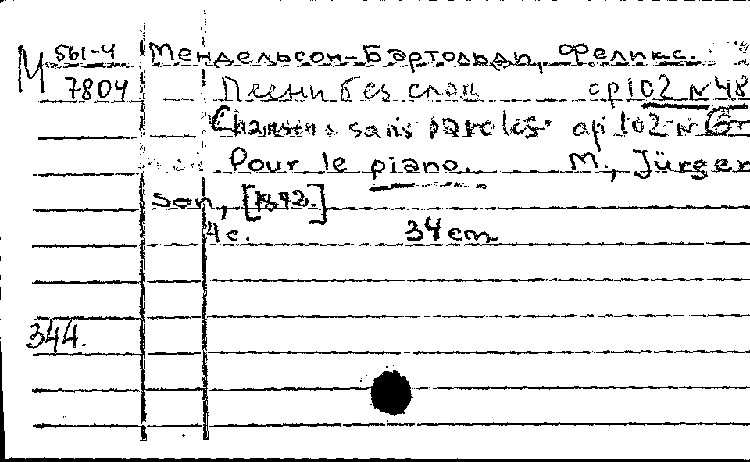 М 561-4 Мендельсон-Бартольди, Феликс.
7804 Песни без слов ор 102 № 48
Chansons sans paroles op 102 №
Pour le piano. М., Jürgen
son, [1873.]
4 с. 34 cm
344.